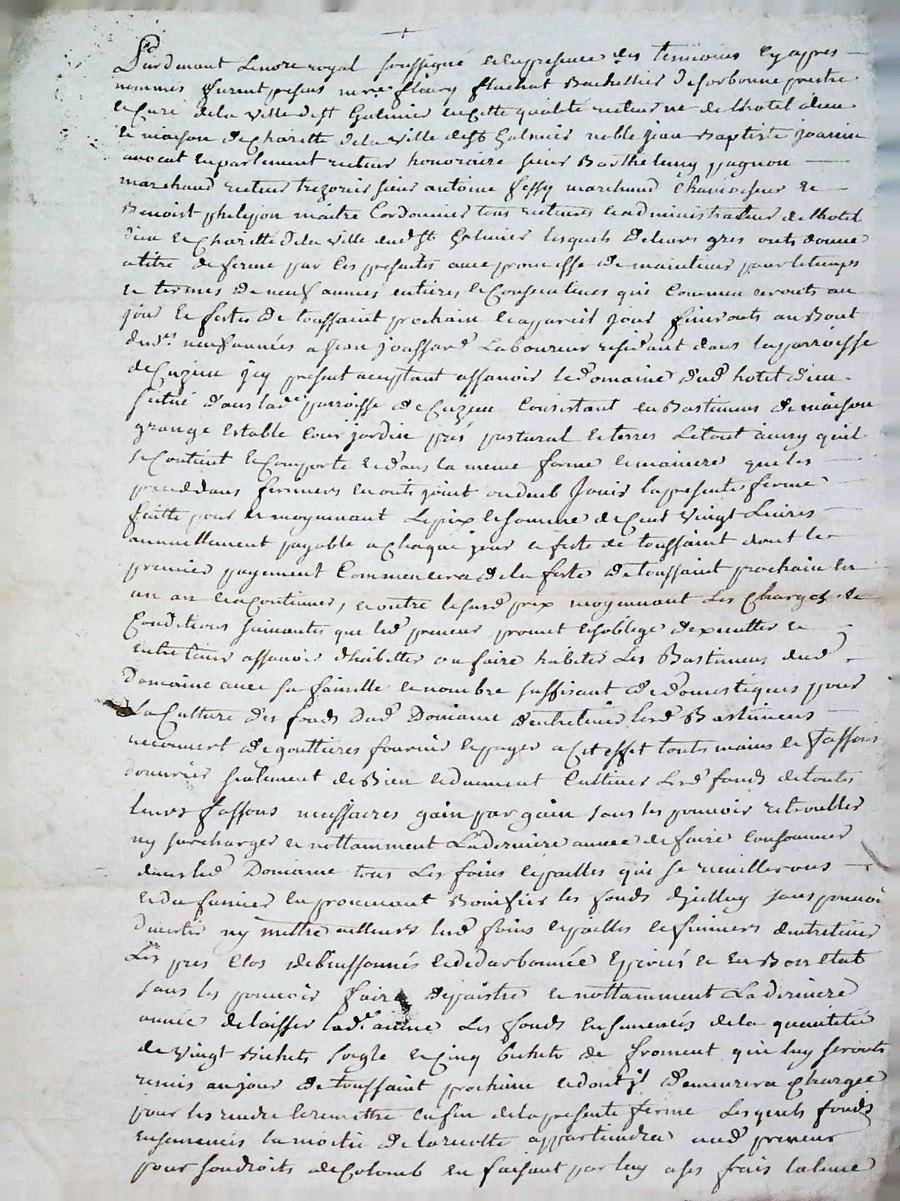 Pardevant le notre royal soussigné et en presence des temoins cy apres
nommés furent presens mre fleury fluchat Bachellier de sorbonne prestre
et Curé de la ville de st Galmier en cette qualité recteur né de lhotel dieu
et maison de Charitte de la ville de st Galmier noble jean Baptiste joanin
avocat en parlement recteur honoraire sieur Barthelemy pagnon
marchand recteur trezorier sieur antoine fessy marchand Chamoiseur et
Benoist philipon maitre Cordonnier tous recteurs et administrateur de lhotel
dieu et Charitté de la ville dud st Galmier lesquels de leurs gres onts donné
a titre de ferme par les presentes avec promesse de maintenir pour le temps
et termes de neuf années entieres et Consecutives qui Commenceronts au
jour et festes de toussaint prochaine et a pareil jour finironts au Bout
desd. neuf années a jean joassard Laboureur residant dans la parroisse
de Cuzieu jcy present acceptant assavoir le domaine dud hotel dieu
situé dans lade parroisse de Cuzieu Consistant en Bastimens de maison
grange Estable Cour jardin prés pastural et terres le tout ainsy quil
se Contient et Comporte et dans la meme forme et maniere que les
precedans fermiers en onts joüit ou deub Joüir la presente ferme
faitte pour et moyennant Le prix et somme de Cent vingt Livres
annuellement payable a Chaque jour et feste de toussaint dont le
premier payement Commencera de la feste de toussaint prochaine en
un an et a Continuer, et outre le susd prix moyennant Les Charges et
Conditions suivantes que led preneur promet et soblige dexecutter et
entretenir assavoir dhabitter ou faire habiter Les Bastimens dud
Domaine avec sa famille et nombre suffisant de domestiques pour
La Culture des fonds dud Domaine dentretenir lesd Bastimens
recouvert de gouttieres fournir et payer a Cet effet touts mains et fassons
douvriers de Bien et duement Cultiver Lesd fonds de toutes
leurs fassons necessaires gain par gain sans les pouvoir retroubler
ny surcharger et nottamment La derniere année de faire Consommer
dans led Domaine tous Les foins et pailles qui se receuilleronts
et du fumier en provenant Bonifier les fonds djcelluy sans pouvoir
divertir ny mettre ailleurs lesd foins et pailles et fumiers dentretenir
Les prés Clos de buissonnés et en Bon Etat
sans les pouvoir faire depaistre et nottamment La derniere
année de laisser Les fonds ensemencés de la quantité
de vingt Bichets seigle et Cinq bichets de froment qui luy seronts
remis au jour de toussaint prochaine et dont jl demeurera Chargée
pour les rendre et remettre en fin de la presente ferme desquels fonds
ensemencés la moitié de la recolte appartiendra aud preneur
pour ses droits de Colomb en faisant par luy a ses frais la